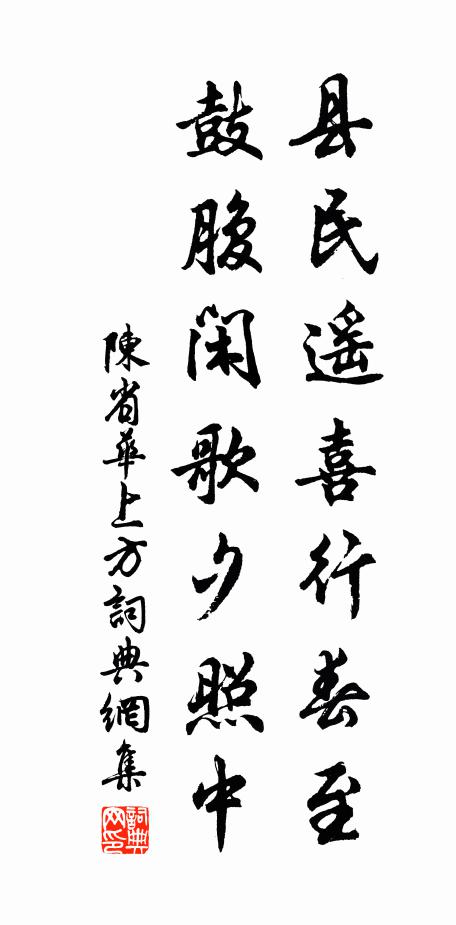 县民遥喜行春至
鼓腹闲歌夕照中
陳省華上方詞典網集
詞典网印